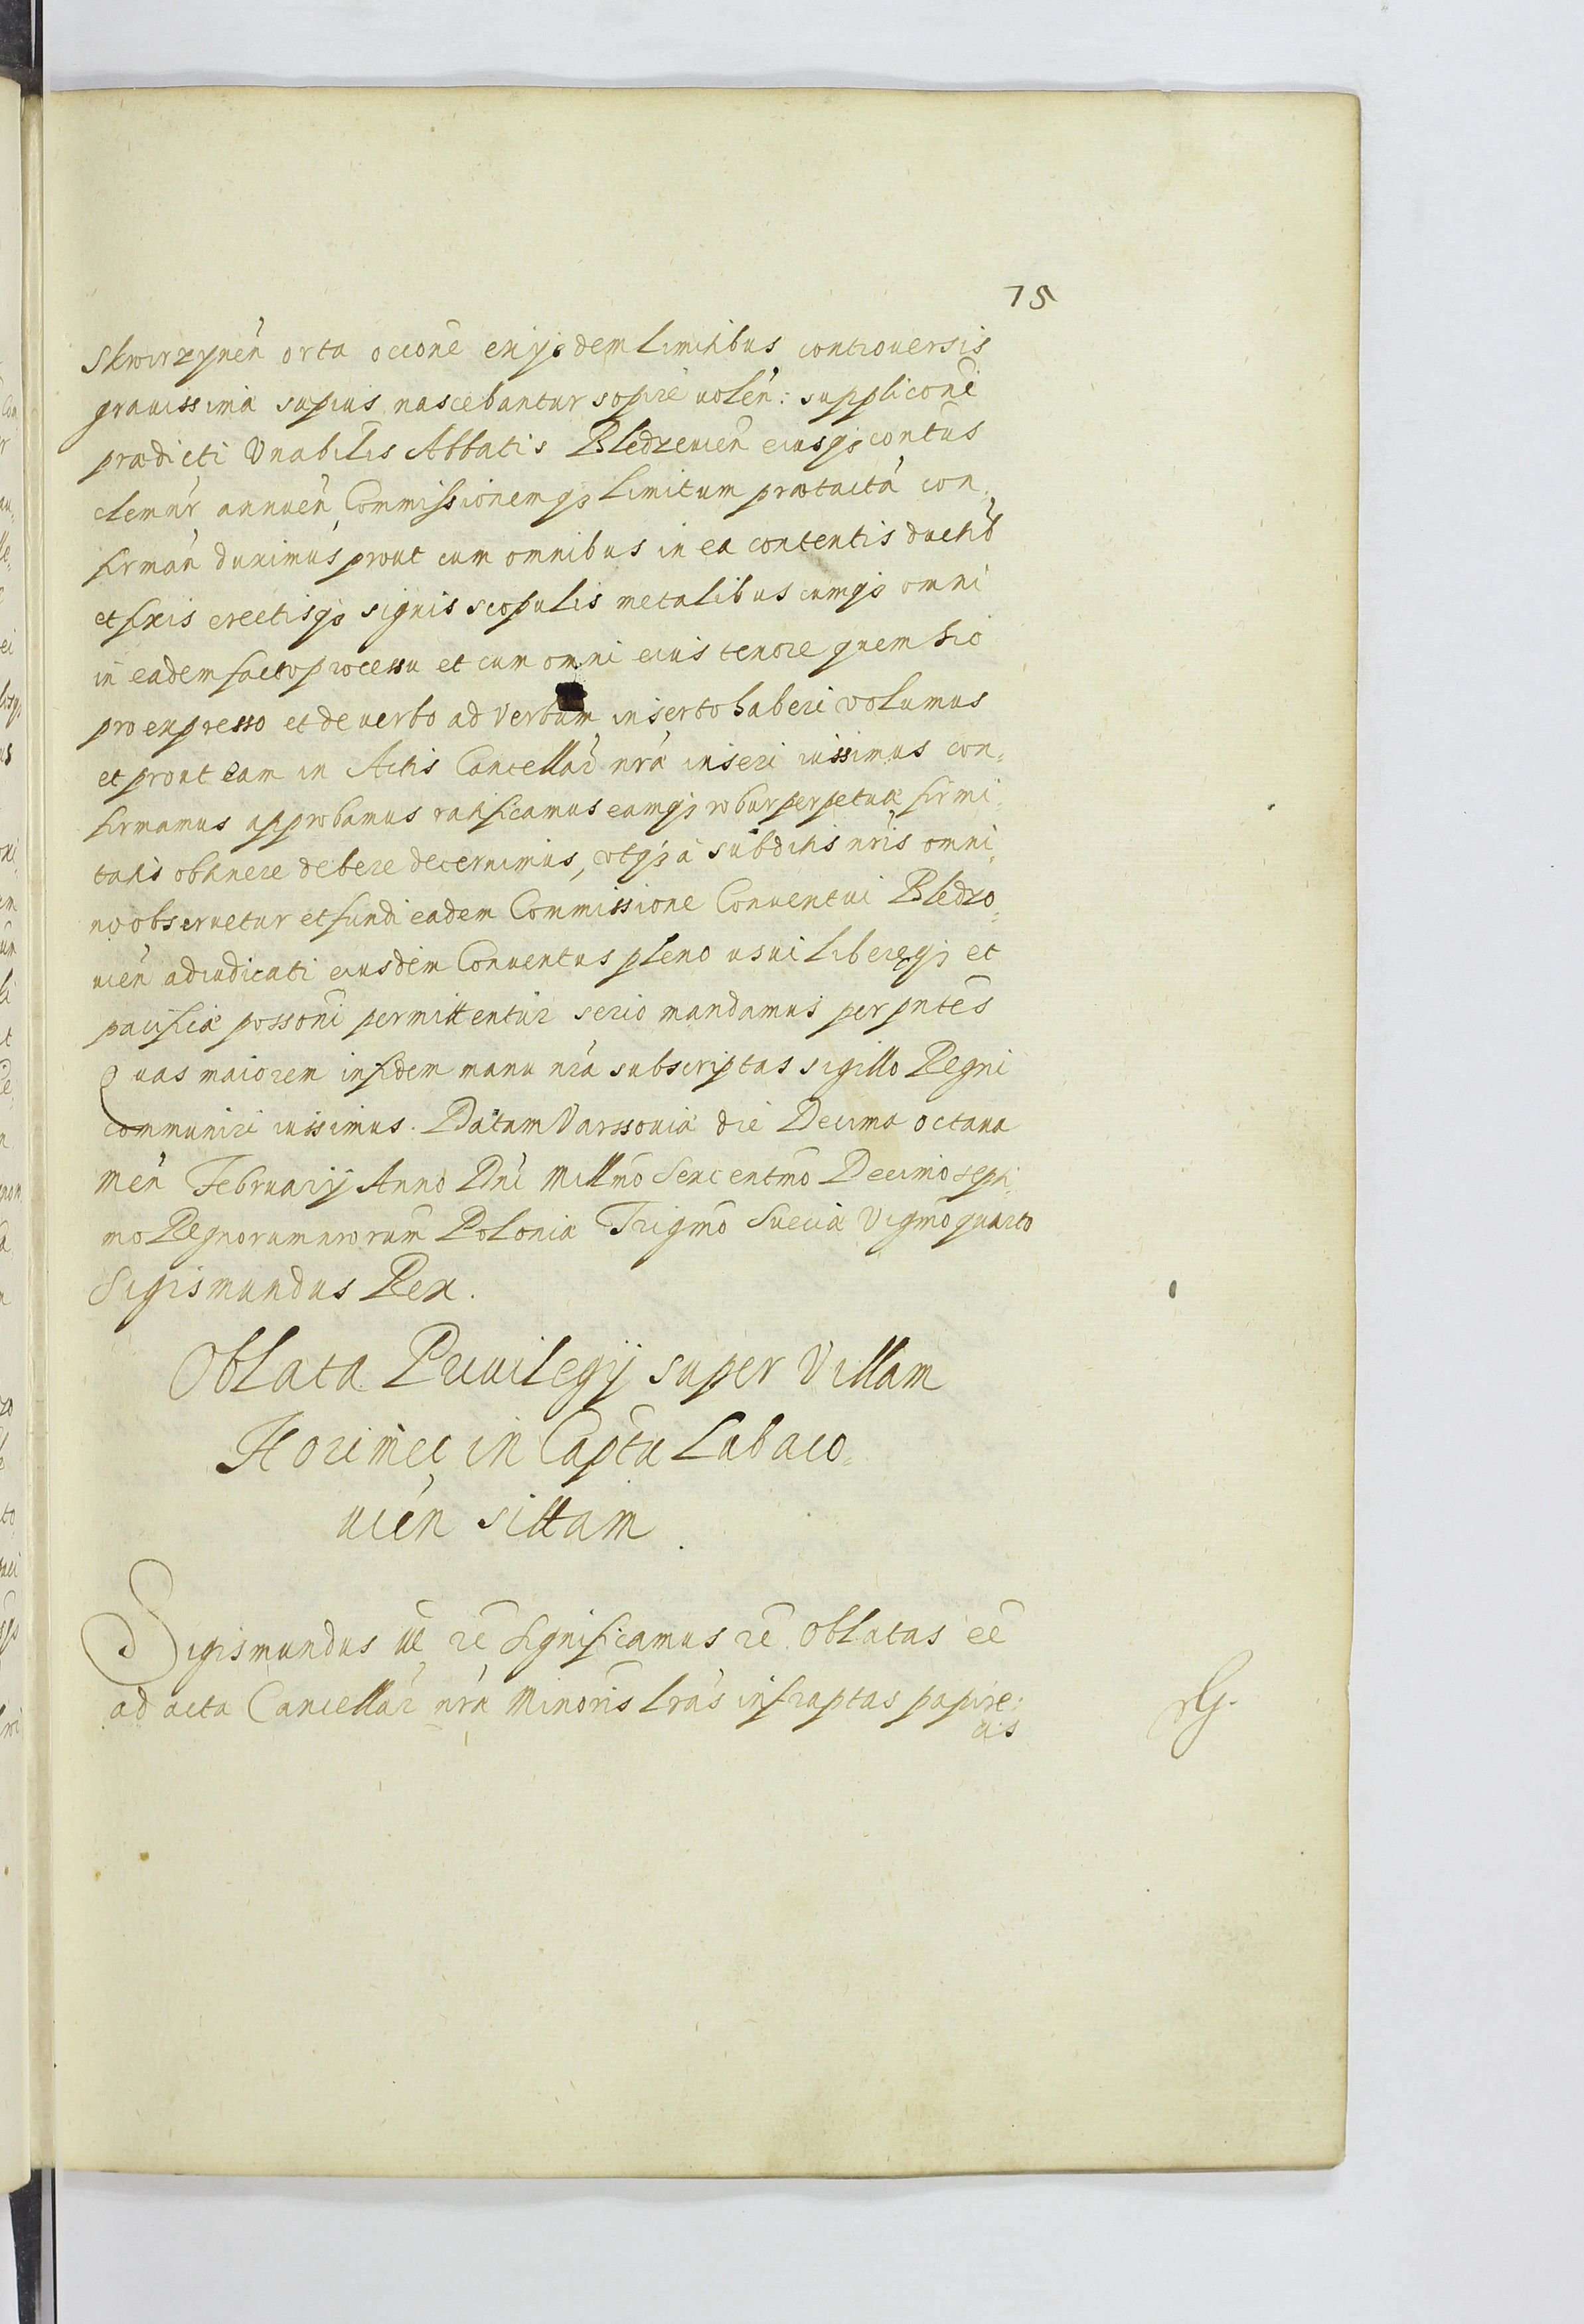 75
Skwirzynen orta occone exijsdem limitibus controuersis
grauissima sapius nascebantur sopire uolen: supplicone
prædicti Vnabilis Abbatis Bledzeuien eiusqȝ contus
clemnr annuen Commissionemqȝ limitum prætacta con„
firman duximus prout cum omnibus in ea contentis ductib
et fixis erectisqȝ signis scopulis metalibus cumqȝ omni
in eadem facto processu et cum omni eius tenore quem hic
pro expresso et de uerbo ad Verbum inserto haberi volumus
et prout eam in Actis Cancellar nra inseri iussimus con„
firmamus approbamus ratificamus eamqȝ robur perpetuæ firmi„
tatis obtinere debere decernimus, vtqȝ a subditis nris omni„
no obseruetur et fundi eadem Commissione Conuentui Bledzo„
uien adiudicati eiusdem Conuentus pleno usui libereqȝ et
pacificæ possoni permittentur serio mandamus per pntes
Quas maiorem in fidem manu nra subscriptas sigillo Regni
communiri iussimus. Datum Varssouiæ die Decima octaua
men Februarij Anno Dni Millmo Sexcentmo Decimo septi„
mo Regnorum nrorum Poloniæ Trigmo Sueciæ Vigmo quarto
Sigismundus Rex.
Oblata Priuilegij super Villam
Horimec in Captu Lubaco„
uien sittam
Sigismundus ut re Significamus re Oblatas ee
ad acta Cancellar nra Minoris lras infraptas papire„
as
RG.